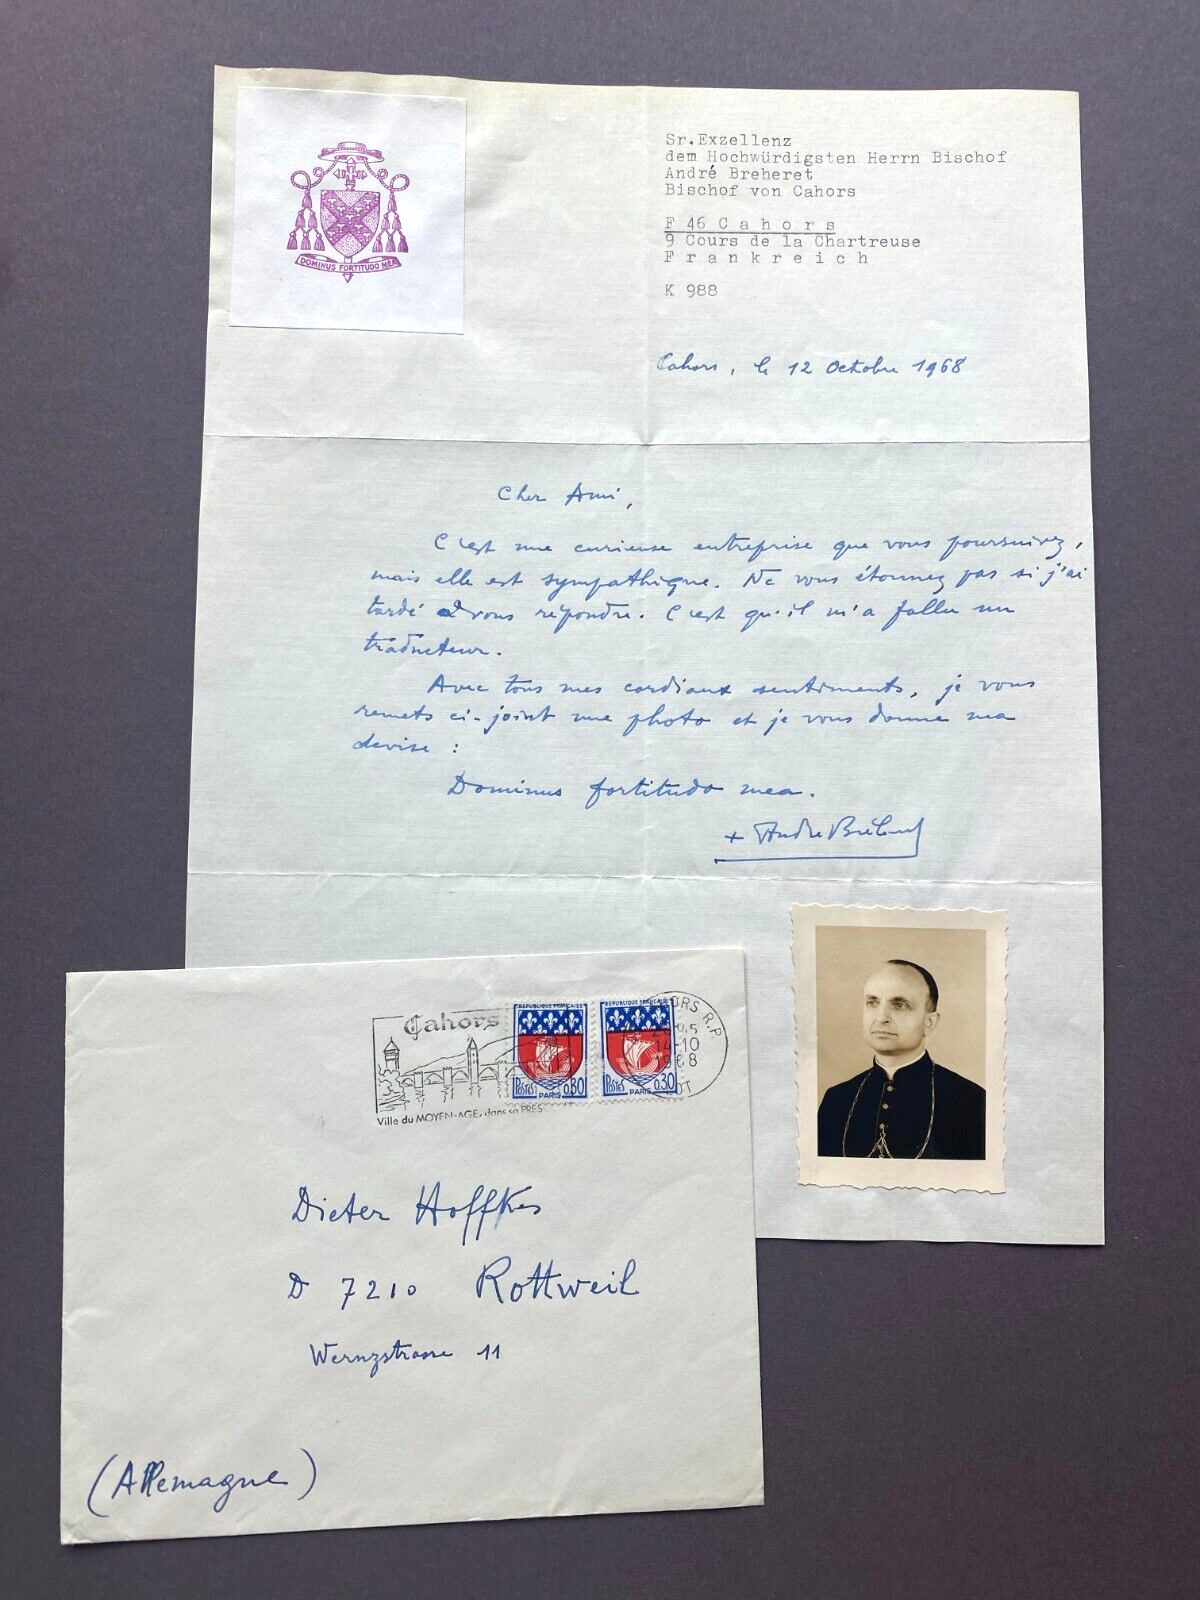 DOMINUS FORTITUDO MEA
Sr.Exzellenz
dem Hochwürdigsten Herrn Bischof
André Breheret
Bischof von Cahors
F 46 Cahors
9 Cours de la Chartreuse
Frankreich
K 988
Cahors, le 12 Octobre 1968
Cher Ami,
C'est une curieuse entreprise que vous poursuivez,
mais elle est sympathique. Ne vous étonnez pas si j'ai
tardé à vous répondre. C'est qu'il m'a fallu un
traducteur.
Avec tous mes cordiaux sentiments, je vous
remets ci-joint une photo et je vous donne ma
devise :
Dominus fortitudo mea.
+ André Bréheret
Cahors
Ville du MOYEN-AGE, dans sa PRES
REPUBLIQUE FRANÇAISE
POSTES 0.30
PARIS
REPUBLIQUE FRANÇAISE
POSTES 0.30
PARIS
ORS R.P.
14-10
LOT
Dieter Hoffkes
D 7210 Rottweil
Wernzstrasse 11
(Allemagne)